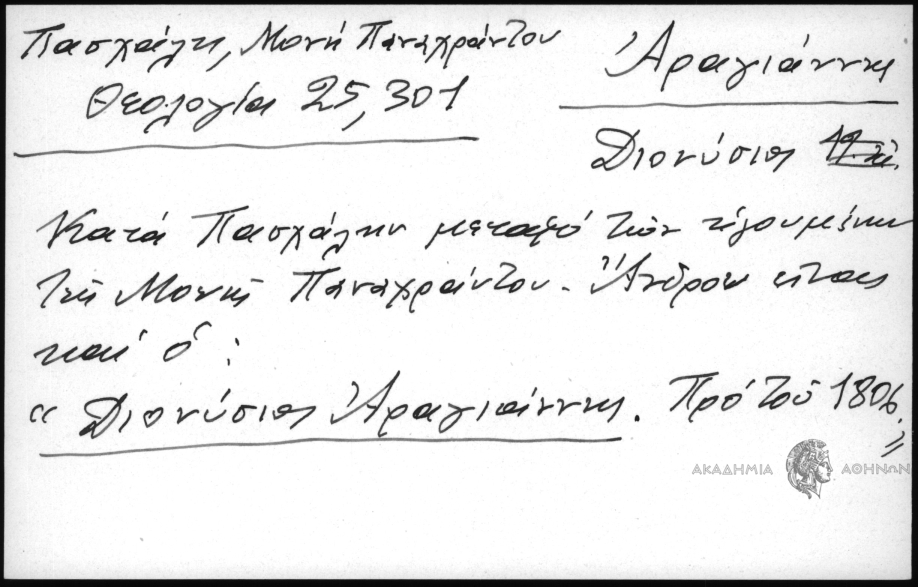 Πασχάλη, Μονή Παναχράντου
Θεολογία 25, 301
Ἀραγιάννης
Διονύσιος
Κατά Πασχάλην μεταξύ τῶν ἡγουμένων
τῆς Μονῆς Παναχράντου - Ἄνδρου εἶναι
καί ὁ :
« Διονύσιος Ἀραγιάννης. Πρό τοῦ 1806 »
ΑΚΑΔΗΜΙΑ ΑΘΗΝΩΝ